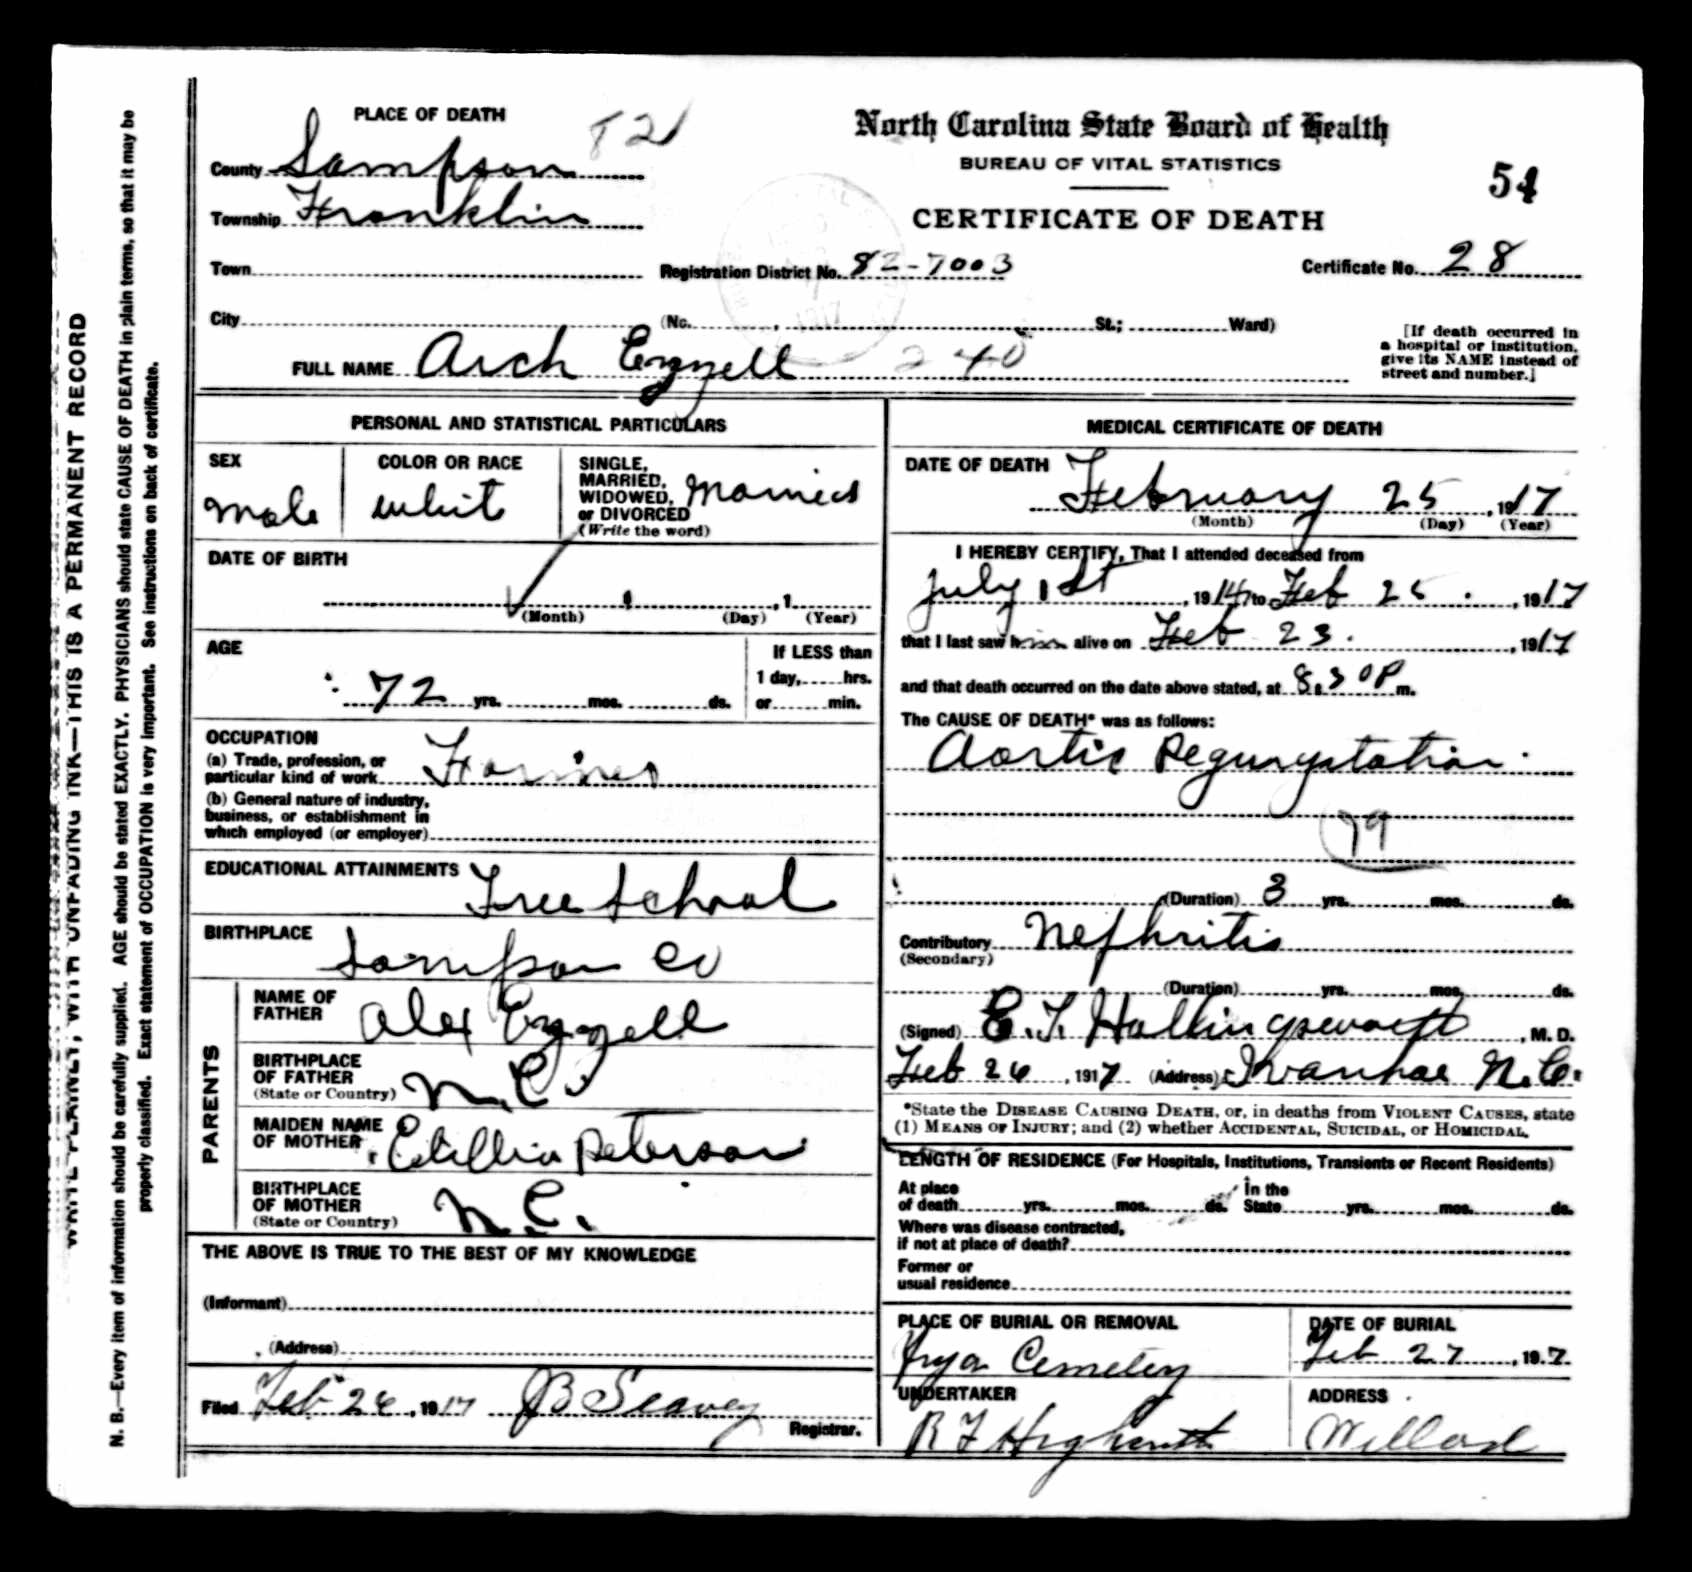 PLACE OF DEATH
821
County Sampson
Township Franklin
Town
City
North Carolina State Board of Health
BUREAU OF VITAL STATISTICS
CERTIFICATE OF DEATH
54
Registration District No. 82-7003
Certificate No. 28
(No. , St.; Ward)
[If death occurred in
a hospital or institution,
give its NAME instead of
street and number.]
FULL NAME Arch Ezzell 240
PERSONAL AND STATISTICAL PARTICULARS
SEX
Male
COLOR OR RACE
White
SINGLE,
MARRIED,
WIDOWED,
or DIVORCED
(Write the word)
Married
DATE OF BIRTH
(Month) (Day) , 1 (Year)
AGE
72 yrs. mos. ds.
If LESS than
1 day, hrs.
or min.
OCCUPATION
(a) Trade, profession, or
particular kind of work Farmer
(b) General nature of industry,
business, or establishment in
which employed (or employer)
EDUCATIONAL ATTAINMENTS Free School
BIRTHPLACE
Sampson Co
PARENTS
NAME OF
FATHER Alex Ezzell
BIRTHPLACE
OF FATHER
(State or Country) N.C.
MAIDEN NAME
OF MOTHER Peterson
BIRTHPLACE
OF MOTHER
(State or Country) N.C.
THE ABOVE IS TRUE TO THE BEST OF MY KNOWLEDGE
(Informant)
(Address)
Filed Feb 26, 1917 JB Seavey
Registrar.
MEDICAL CERTIFICATE OF DEATH
DATE OF DEATH
February 25, 1917
(Month) (Day) (Year)
I HEREBY CERTIFY, That I attended deceased from
July 1st, 1914, to Feb 25, 1917
that I last saw him alive on Feb 23, 1917
and that death occurred on the date above stated, at 8:30 P m.
The CAUSE OF DEATH* was as follows:
Aortic Regurgitation
79
(Duration) 3 yrs. mos. ds.
Contributory Nephritis
(Secondary)
(Duration) yrs. mos. ds.
(Signed) E. T. Hollingsworth, M. D.
Feb 26, 1917 (Address) Ivanhoe N.C.
*State the DISEASE CAUSING DEATH, or, in deaths from VIOLENT CAUSES, state
(1) MEANS OF INJURY; and (2) whether ACCIDENTAL, SUICIDAL, or HOMICIDAL.
LENGTH OF RESIDENCE (For Hospitals, Institutions, Transients or Recent Residents)
At place
of death yrs. mos. ds.
In the
State yrs. mos. ds.
Where was disease contracted,
if not at place of death?
Former or
usual residence
PLACE OF BURIAL OR REMOVAL
Cemetery
DATE OF BURIAL
Feb 27, 1917
UNDERTAKER
R F Highsmith
ADDRESS
Willard
WRITE PLAINLY, WITH UNFADING INK—THIS IS A PERMANENT RECORD
N. B.—Every item of information should be carefully supplied. AGE should be stated EXACTLY. PHYSICIANS should state CAUSE OF DEATH in plain terms, so that it may be
properly classified. Exact statement of OCCUPATION is very important. See instructions on back of certificate.